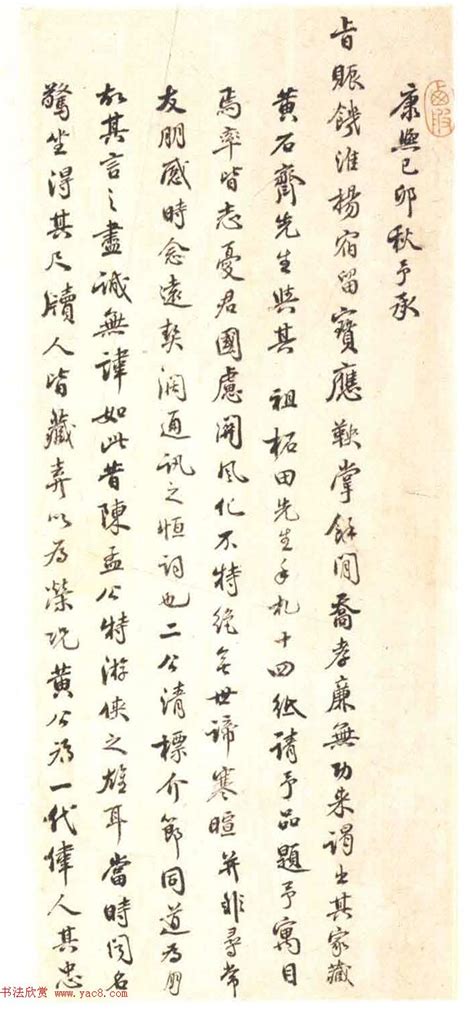 康熙己卯秋予承
旨賑饑淮楊宿留寶應鞅掌餘閒喬孝廉無功来謁出其家藏
黄石齋先生與其 祖柘田先生手札十四紙請予品題予寓目
焉率皆志憂君國慮關風化不特絕無世諦寒暄并非尋常
友朋感時念遠契濶通訊之恒詞也二公清標介節同道為朋
故其言之盡誠無諱如此昔陳孟公特游俠之雄耳當時聞名
驚坐得其尺牘人皆藏弆以為榮況黄公為一代偉人其忠
书法欣赏 www.yac8.com